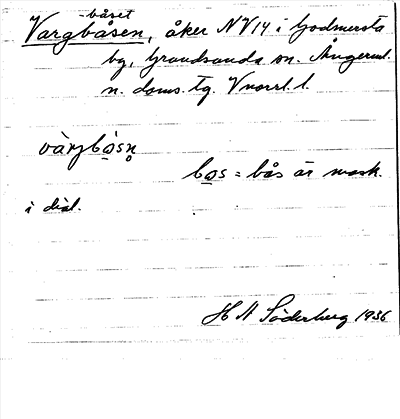 -båset
Vargbåsen, åker NV14 i Godmersta
by, Grundsunda sn. Ångerml.
n. doms. tg. Vnorrl. l.
vàrjbåsn̥
bo̲s = bås är mask.
i dial.
H A Söderberg 1936